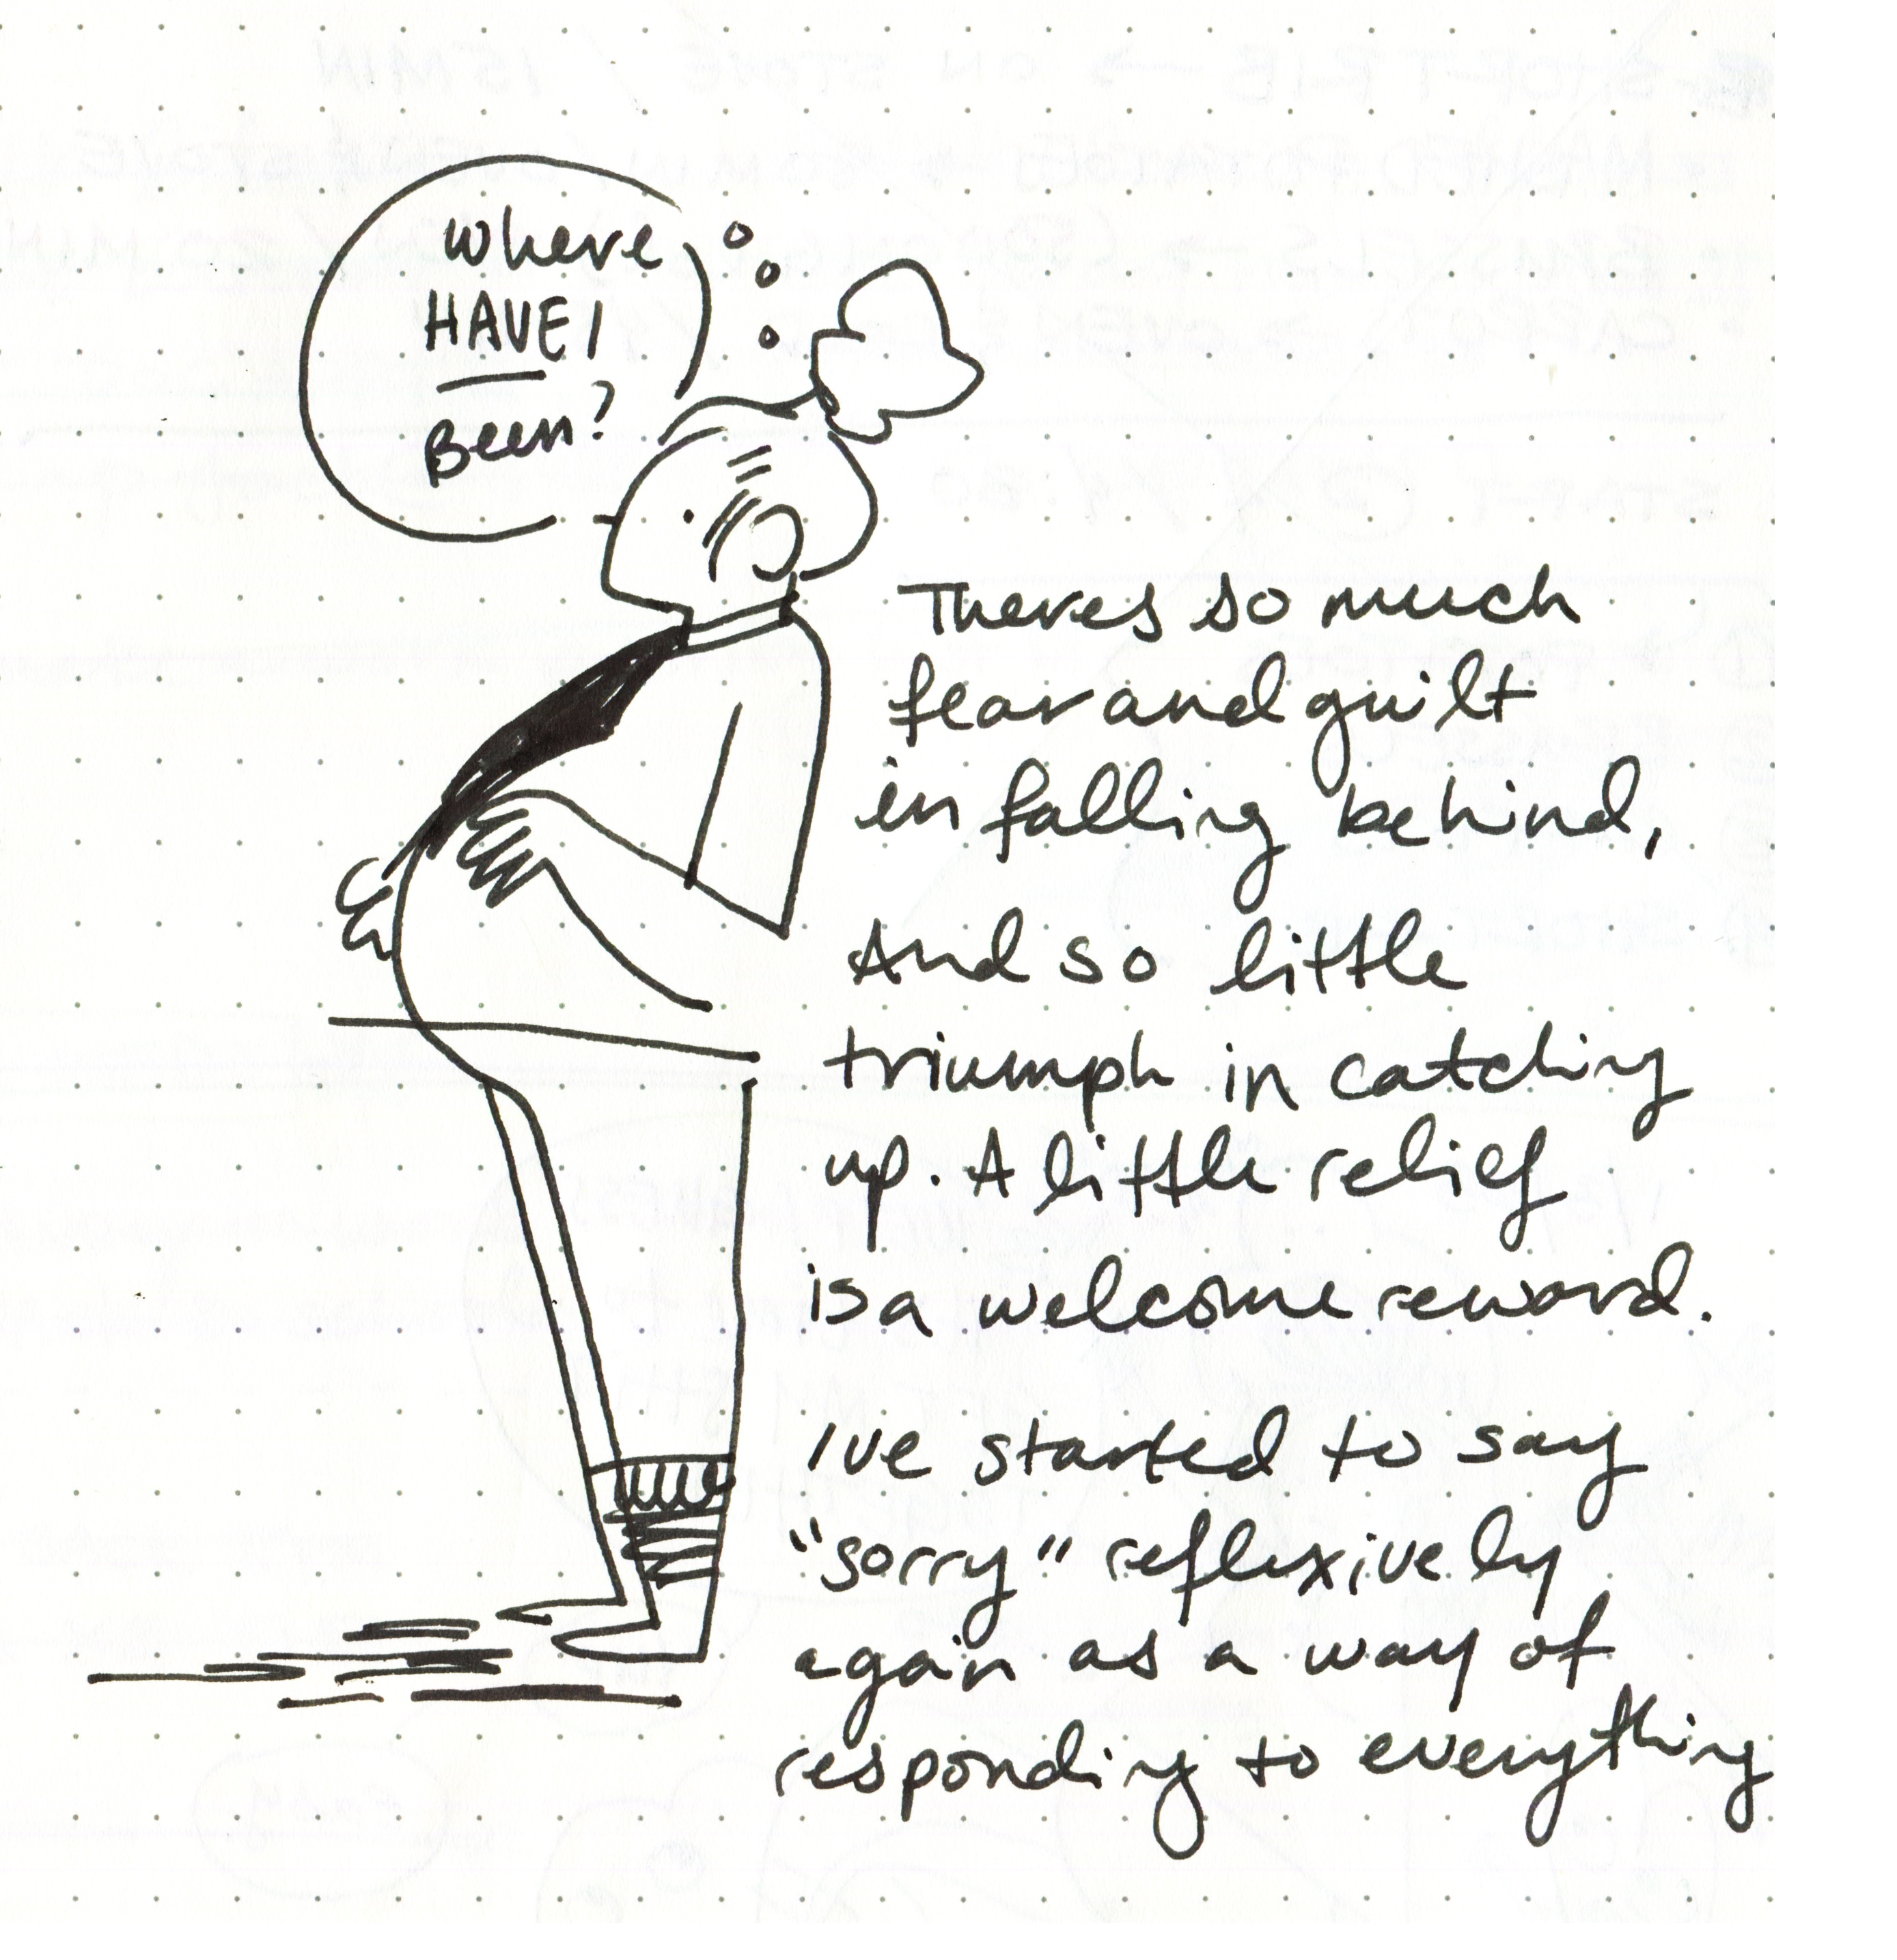 where
HAVE I
Been?
Theres so much
fear and guilt
in falling behind,
And so little
triumph in catching
up. A little relief
is a welcome reward.
I've started to say
"sorry" reflexively
again as a way of
responding to everything